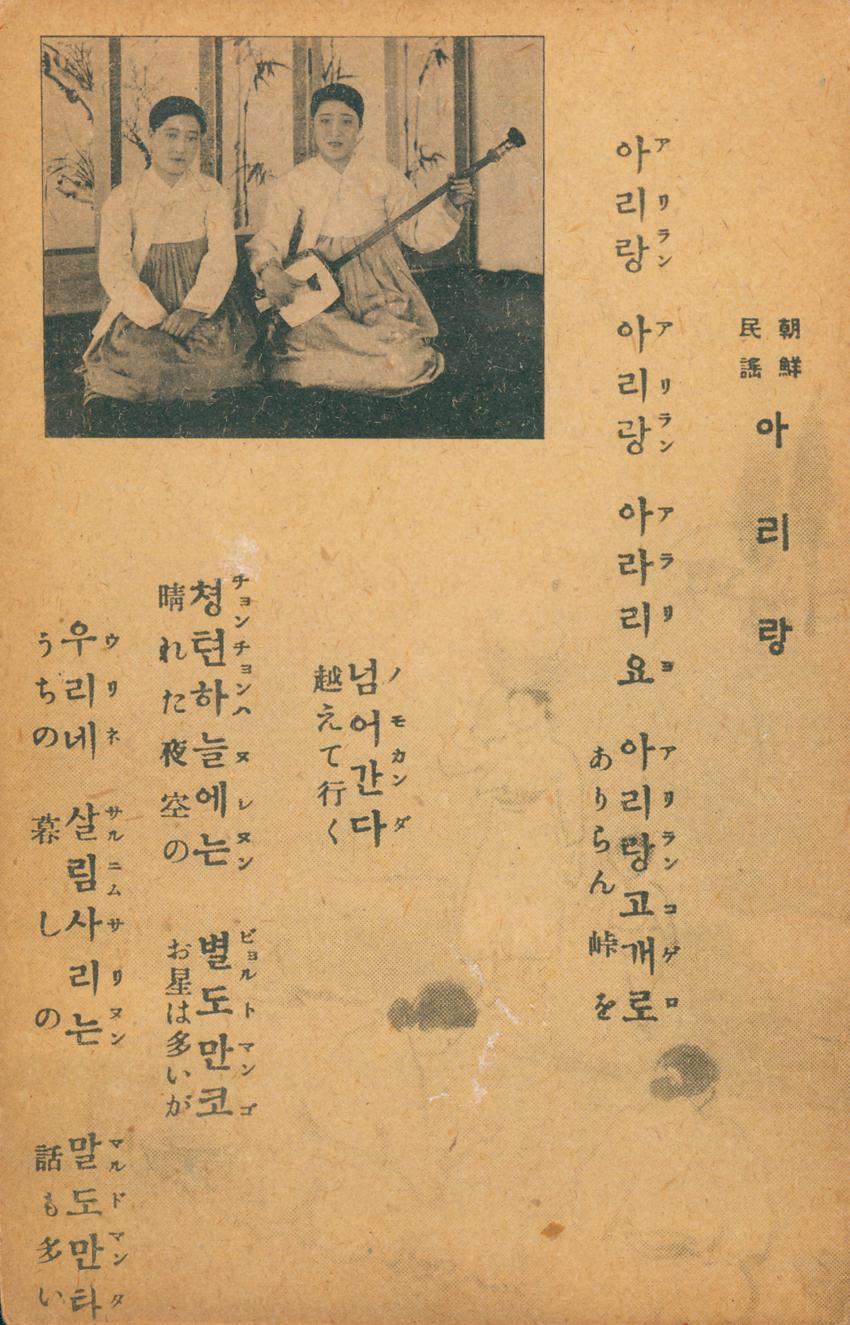 朝鮮
民謠
아리랑
アリラン アリラン アラリヨ アリランコゲロ
아리랑 아리랑 아라리요 아리랑고개로
ありらん 峠を
ノモカンダ
넘어간다
越えて行く
チョンチョンハヌレヌン ビョルトマンゴ
청텬하늘에는 별도만코
晴れた夜空の お星は多いが
ウリネ サルニムサリヌン マルドマンタ
우리네 살림사리는 말도만타
うちの 暮しの 話も多い